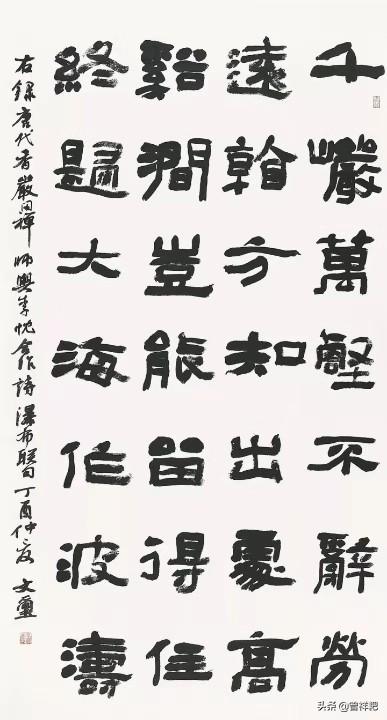 千巖萬壑不辭勞
遠看方知出處高
谿澗豈能留得住
終歸大海作波濤
右録唐代香嚴閑禪師與李忱合作詩瀑布聯句丁酉仲夏 文
头条 @曾祥耙